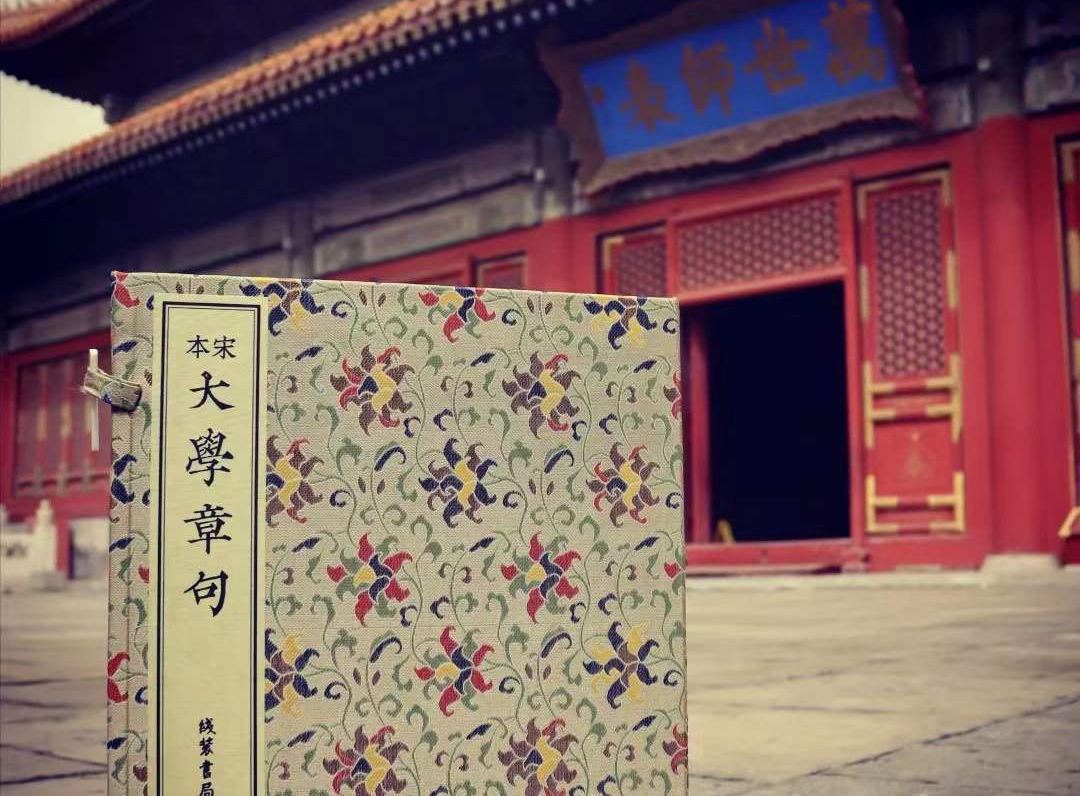 萬世師表
宋本
大學章句
线装書局